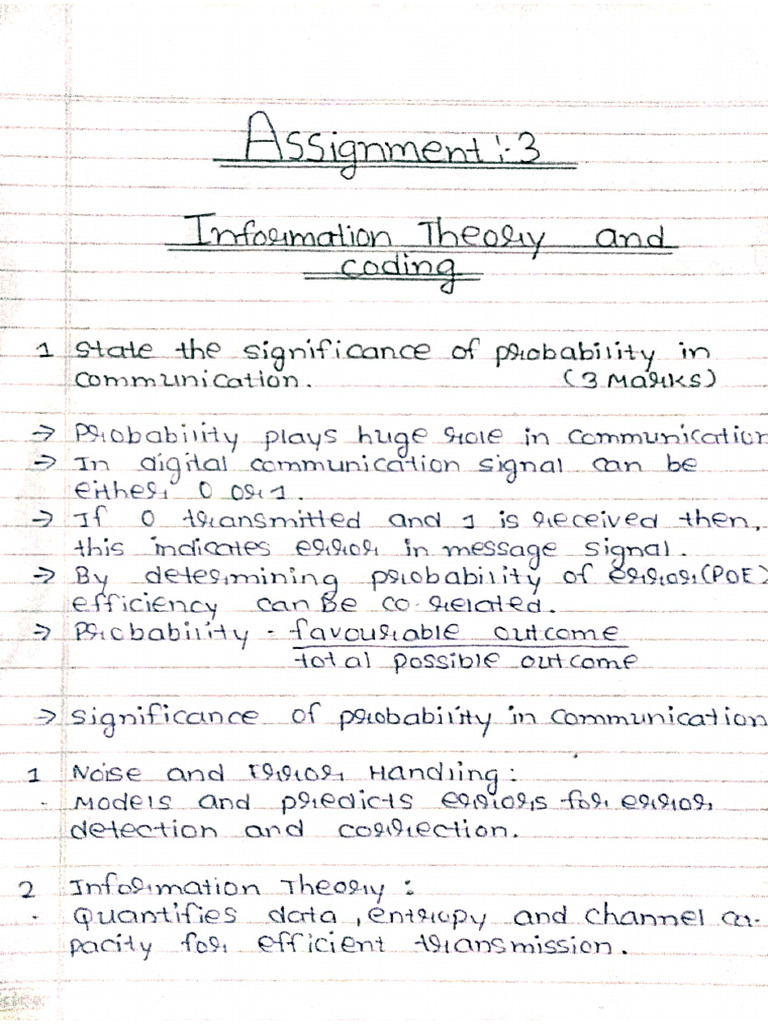 Assignment :- 3
Information Theory and
coding
1 State the significance of probability in
communication. (3 Marks)
→ Probability plays huge role in communication
→ In digital communication signal can be
either 0 or 1.
→ If 0 transmitted and 1 is received then,
this indicates error in message signal.
→ By determining probability of error (POE)
efficiency can be co-related.
→ Probability = favourable outcome
total possible outcome
→ significance of probability in communication
1 Noise and Error Handling :
· Models and predicts errors for error
detection and correction.
2 Information Theory :
· Quantifies data, entropy and channel ca-
pacity for efficient transmission.